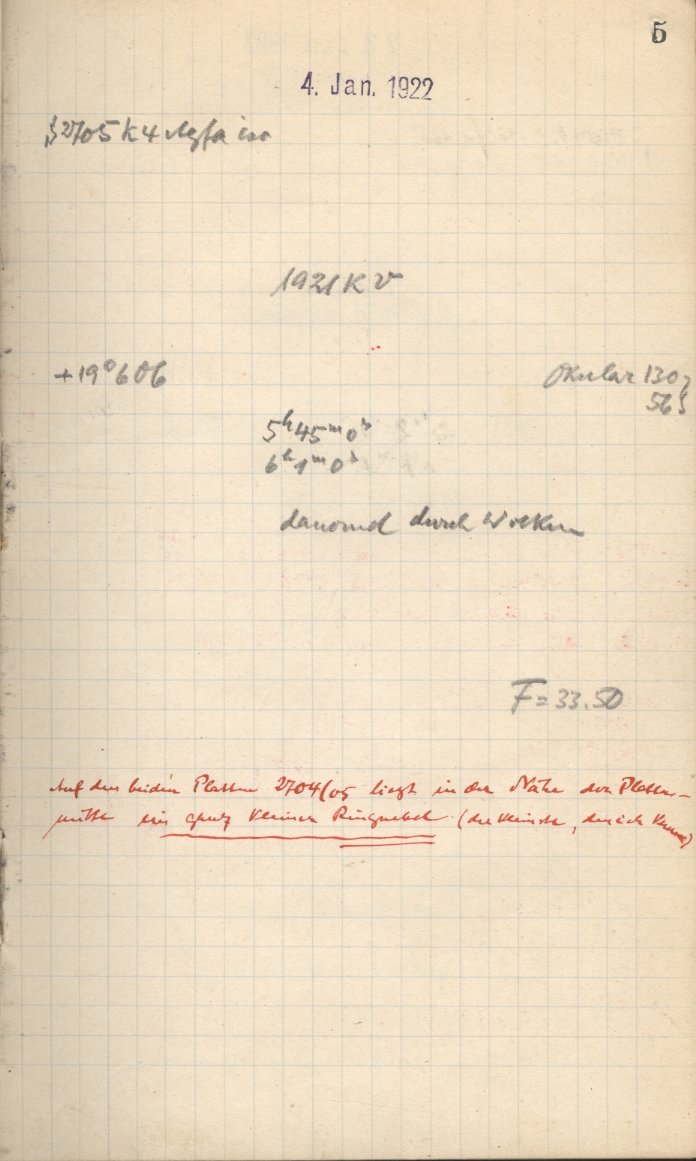 5
4. Jan. 1922
2705 K4 Agfa iso
1921 KV
+19°606
Okular 130
56
5h 45m 0s
6h 1m 0s
dauernd durch Wolken
F = 33.50
Auf den beiden Platten 2704/05 liegt in der Nähe der Platten-
mitte ein ganz kleiner Ringnebel (der kleinste, den ich kenne)